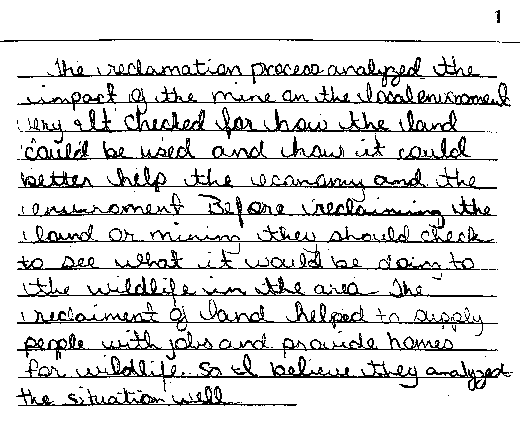 1
The reclamation process analyzed the
impact of the mine on the local enviroment
very It checked for how the land
could be used and how it could
better help the economy and the
enviroment Before reclaiming the
land or mining they should check
to see what it would be doing to
the wildlife in the area. The
reclaiment of land helped to supply
people with jobs and provide homes
for wildlife. So I believe they analyzed
the situation well